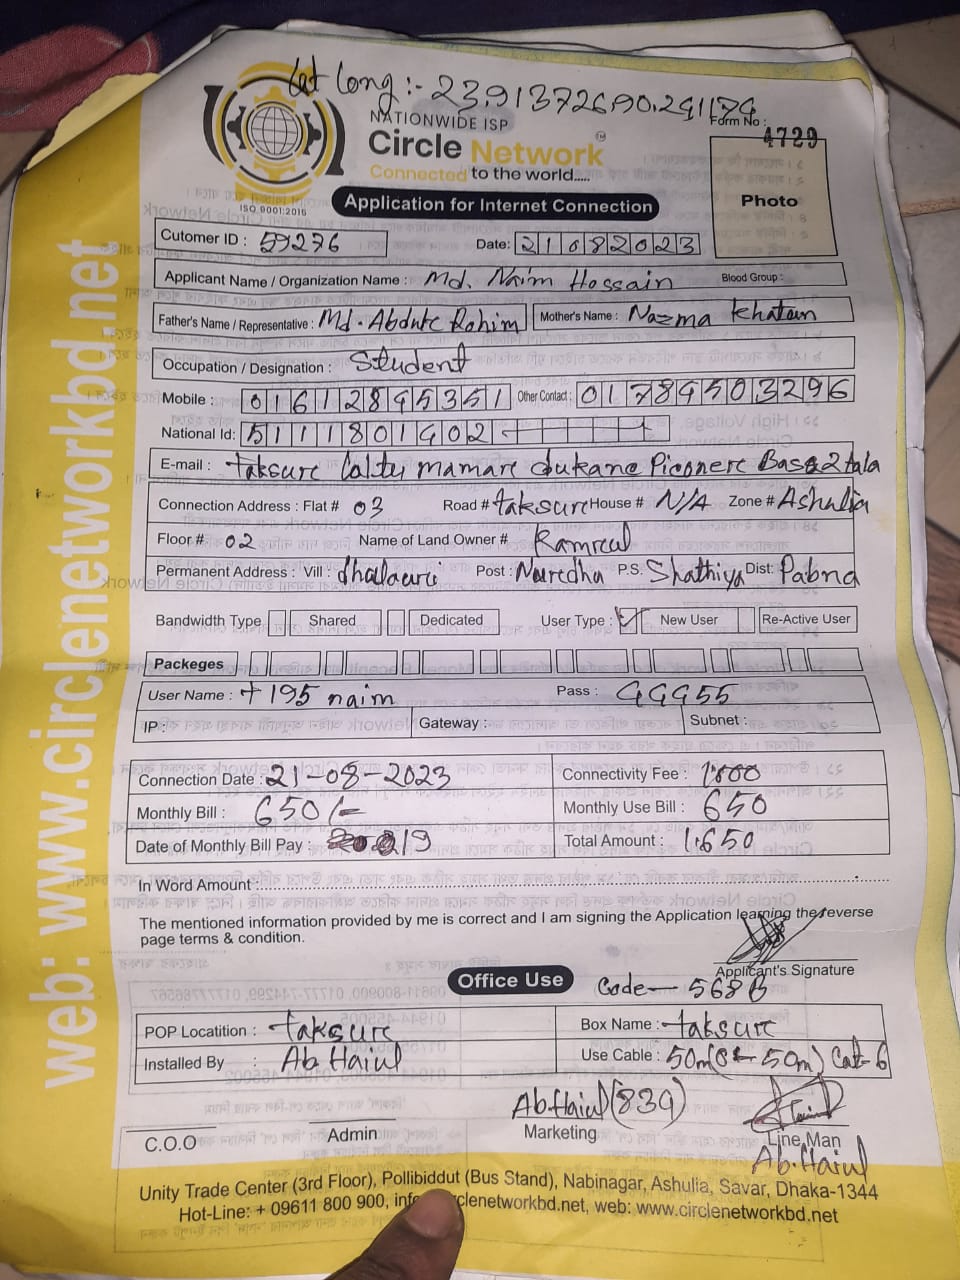 Lat Long :- 23.913726,90.241174
NATIONWIDE ISP
Circle Network
TM
Connected to the world.....
ISO 9001:2016
Form No :
4729
Photo
Application for Internet Connection
Cutomer ID : 59276
Date: 21082023
Applicant Name / Organization Name : Md. Naim Hossain Blood Group :
Father's Name / Representative : Md. Abdur Rohim Mother's Name : Nazma Khatun
Occupation / Designation : Student
Mobile : 01612895351 Other Contact : 01789503296
National Id: 5111801402
E-mail : taksure laltu mamar dukane Basa 2 tala
Connection Address : Flat # 03 Road # taksure House # N/A Zone # Ashulia
Floor # 02 Name of Land Owner #
Permanent Address : Vill : Post : P.S. Shathiya Dist: Pabna
Bandwidth Type Shared Dedicated User Type : ✓ New User Re-Active User
Packeges
User Name : t195 naim Pass : GGG55
IP : Gateway : Subnet :
Connection Date : 21-08-2023 Connectivity Fee : 1000
Monthly Bill : 650/- Monthly Use Bill : 650
Date of Monthly Bill Pay : 19 Total Amount : 1650
In Word Amount
The mentioned information provided by me is correct and I am signing the Application learning the reverse
page terms & condition.
Applicant's Signature
Office Use
Code— 568B
POP Locatition : taksure Box Name : taksure
Installed By : Ab.Haiul Use Cable : 50m(0-50m) Cat-6
Ab.Haiul(839)
C.O.O Admin Marketing Line Man
Ab.Haiul
Unity Trade Center (3rd Floor), Pollibiddut (Bus Stand), Nabinagar, Ashulia, Savar, Dhaka-1344
Hot-Line: + 09611 800 900, clenetworkbd.net, web: www.circlenetworkbd.net
web: www.circlenetworkbd.net